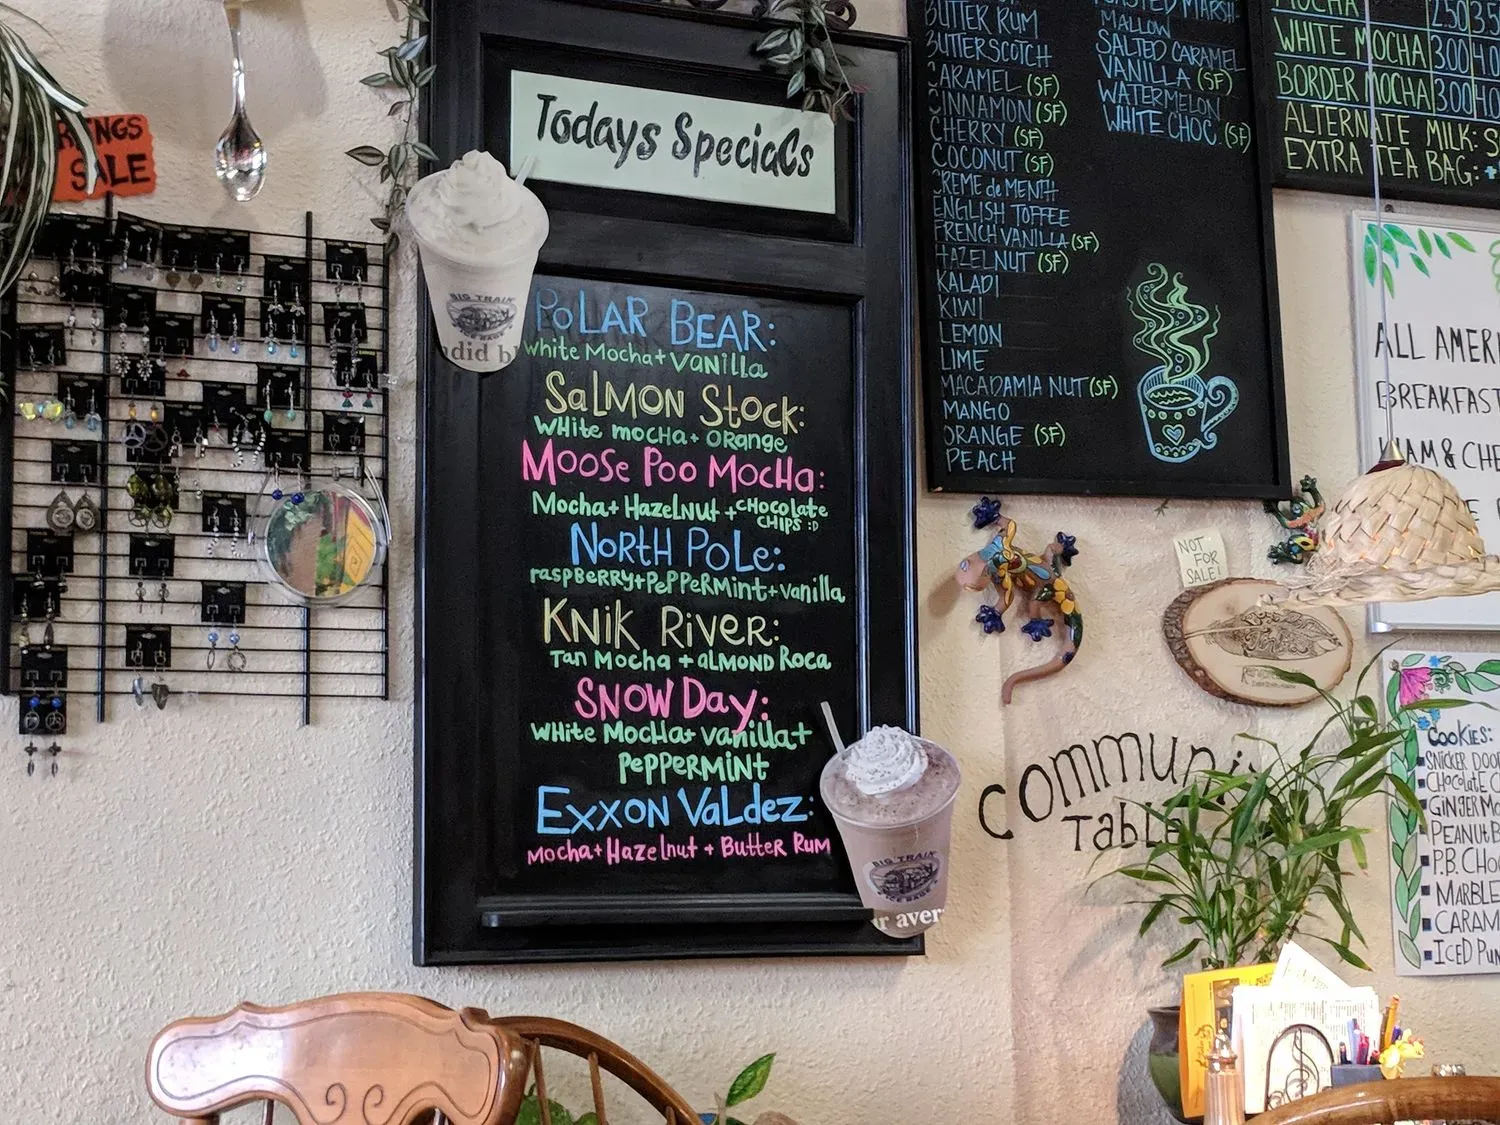 SALE
Todays Specials
POLAR BEAR:
White Mocha + Vanilla
Salmon Stock:
White mocha + Orange
Moose Poo Mocha:
Mocha + Hazelnut + chocolate
chips :D
North Pole:
raspberry + peppermint + vanilla
Knik River:
Tan Mocha + almond Roca
Snow Day:
White Mocha + vanilla +
peppermint
Exxon Valdez:
Mocha + Hazelnut + Butter Rum
BIG TRAIN
BIG TRAIN
ICE RAGE
BUTTER RUM
BUTTERSCOTCH
CARAMEL (SF)
CINNAMON (SF)
CHERRY (SF)
COCONUT (SF)
CREME de MENTH
ENGLISH TOFFEE
FRENCH VANILLA (SF)
HAZELNUT (SF)
KALADI
KIWI
LEMON
LIME
MACADAMIA NUT (SF)
MANGO
ORANGE (SF)
PEACH
MALLOW
SALTED CARAMEL
VANILLA (SF)
WATERMELON
WHITE CHOC. (SF)
MOCHA 2.50 3.5
WHITE MOCHA 3.00 4.0
BORDER MOCHA 3.00 4.0
ALTERNATE MILK:
EXTRA TEA BAG:
ALL
BREAKFAST
& CHE
NOT
FOR
SALE!
Table
Cookies:
SNICKER DOO
CHOCOLATE C
GINGER MO
PEANUT B
P.B. CHO
MARBLE
CARAM
ICED PUN